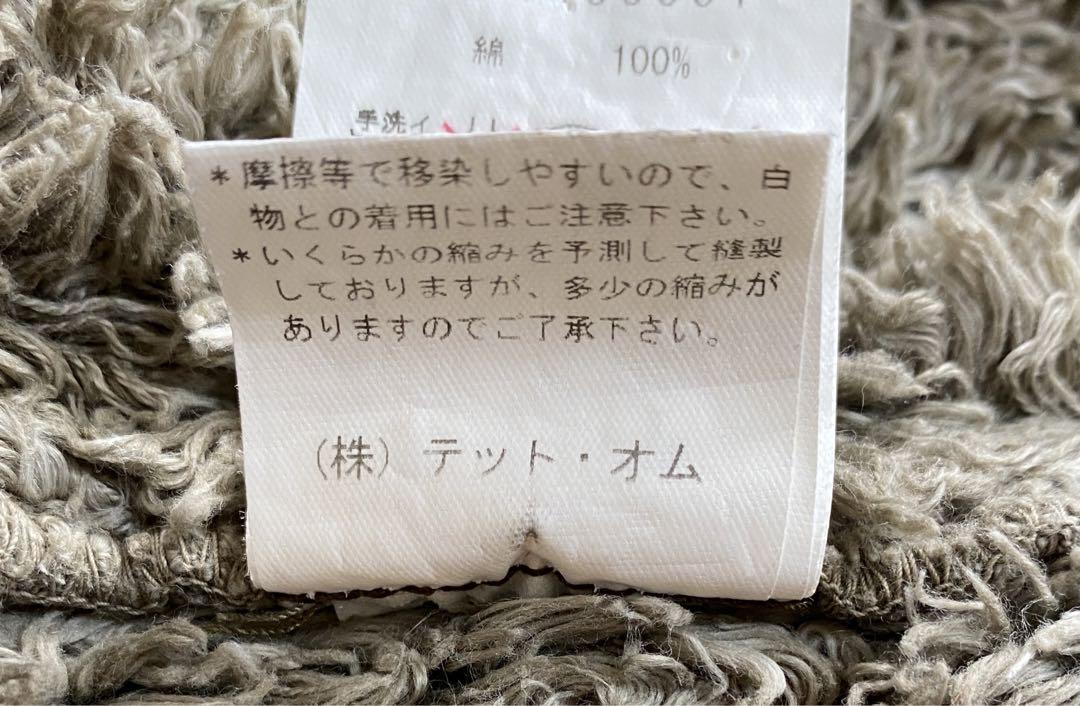 綿 100%
手洗イ
*摩擦等で移染しやすいので、白
物との着用にはご注意下さい。
*いくらかの縮みを予測して縫製
しておりますが、多少の縮みが
ありますのでご了承下さい。
(株) テット・オム